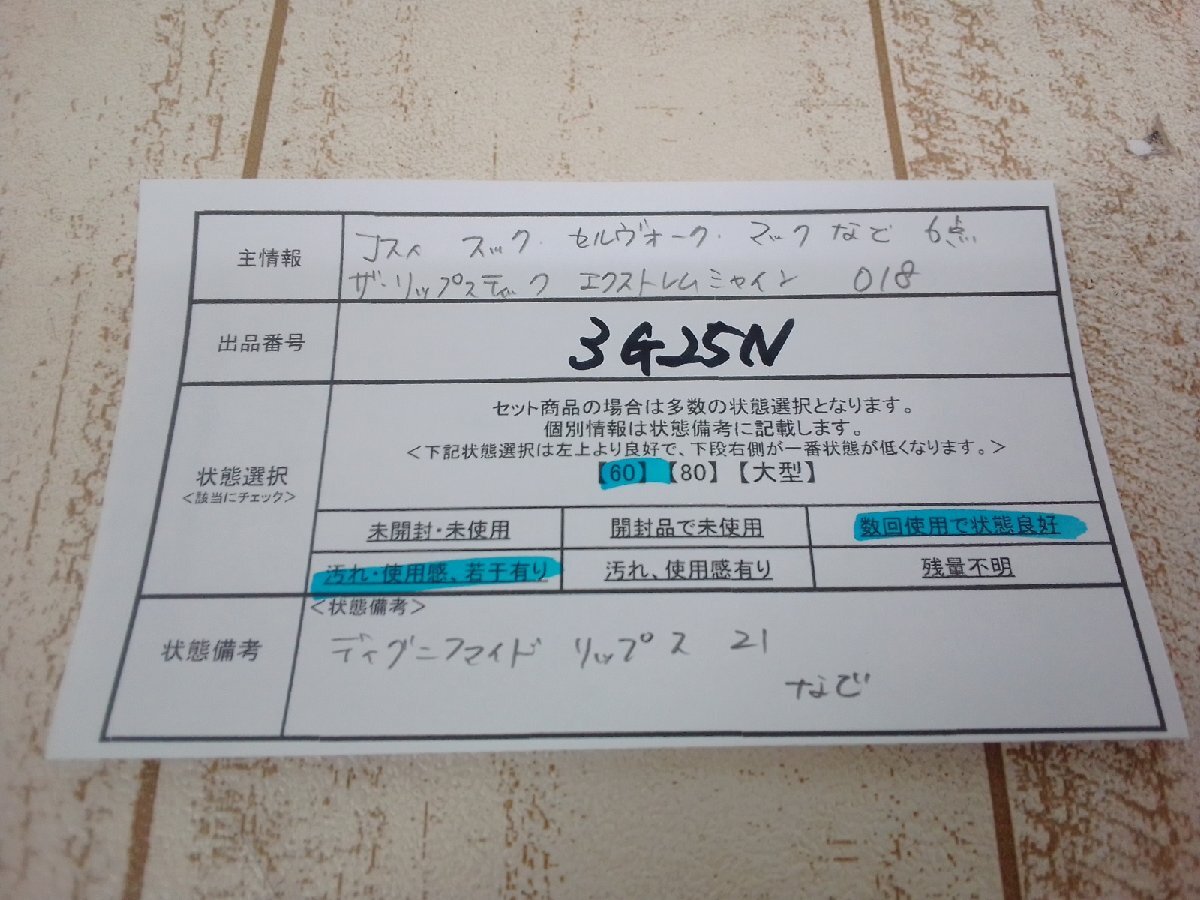 主情報
Jスィ スック・セルヴォーク・マック など 6点
ザ・リップスティック エクストレムシャイン 018
出品番号
3G25N
状態選択
<該当にチェック>
セット商品の場合は多数の状態選択となります。
個別情報は状態備考に記載します。
<下記状態選択は左上より良好で、下段右側が一番状態が低くなります。>
【60】【80】【大型】
未開封・未使用 開封品で未使用 数回使用で状態良好
汚れ・使用感、若干有り 汚れ、使用感有り 残量不明
状態備考
<状態備考>
ディグニファイド リップス 21
など